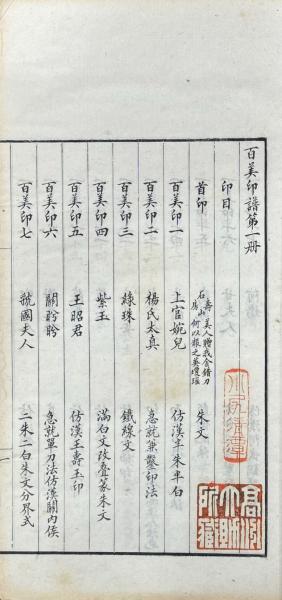 百美印譜第一册
印目
首印 壽山石房 美人贈我金錯刀何以報之英瓊瑶 朱文
百美印一 上官婉兒 仿漢半朱半白
百美印二 楊氏太真 急就兼鑿印法
百美印三 綠珠 鐵線文
百美印四 紫玉 滿白文改疊篆朱文
百美印五 王昭君 仿漢玉壽玉印
百美印六 關盼盼 急就單刀法仿漢關内侯
百美印七 虢國夫人 二朱二白朱文分界式